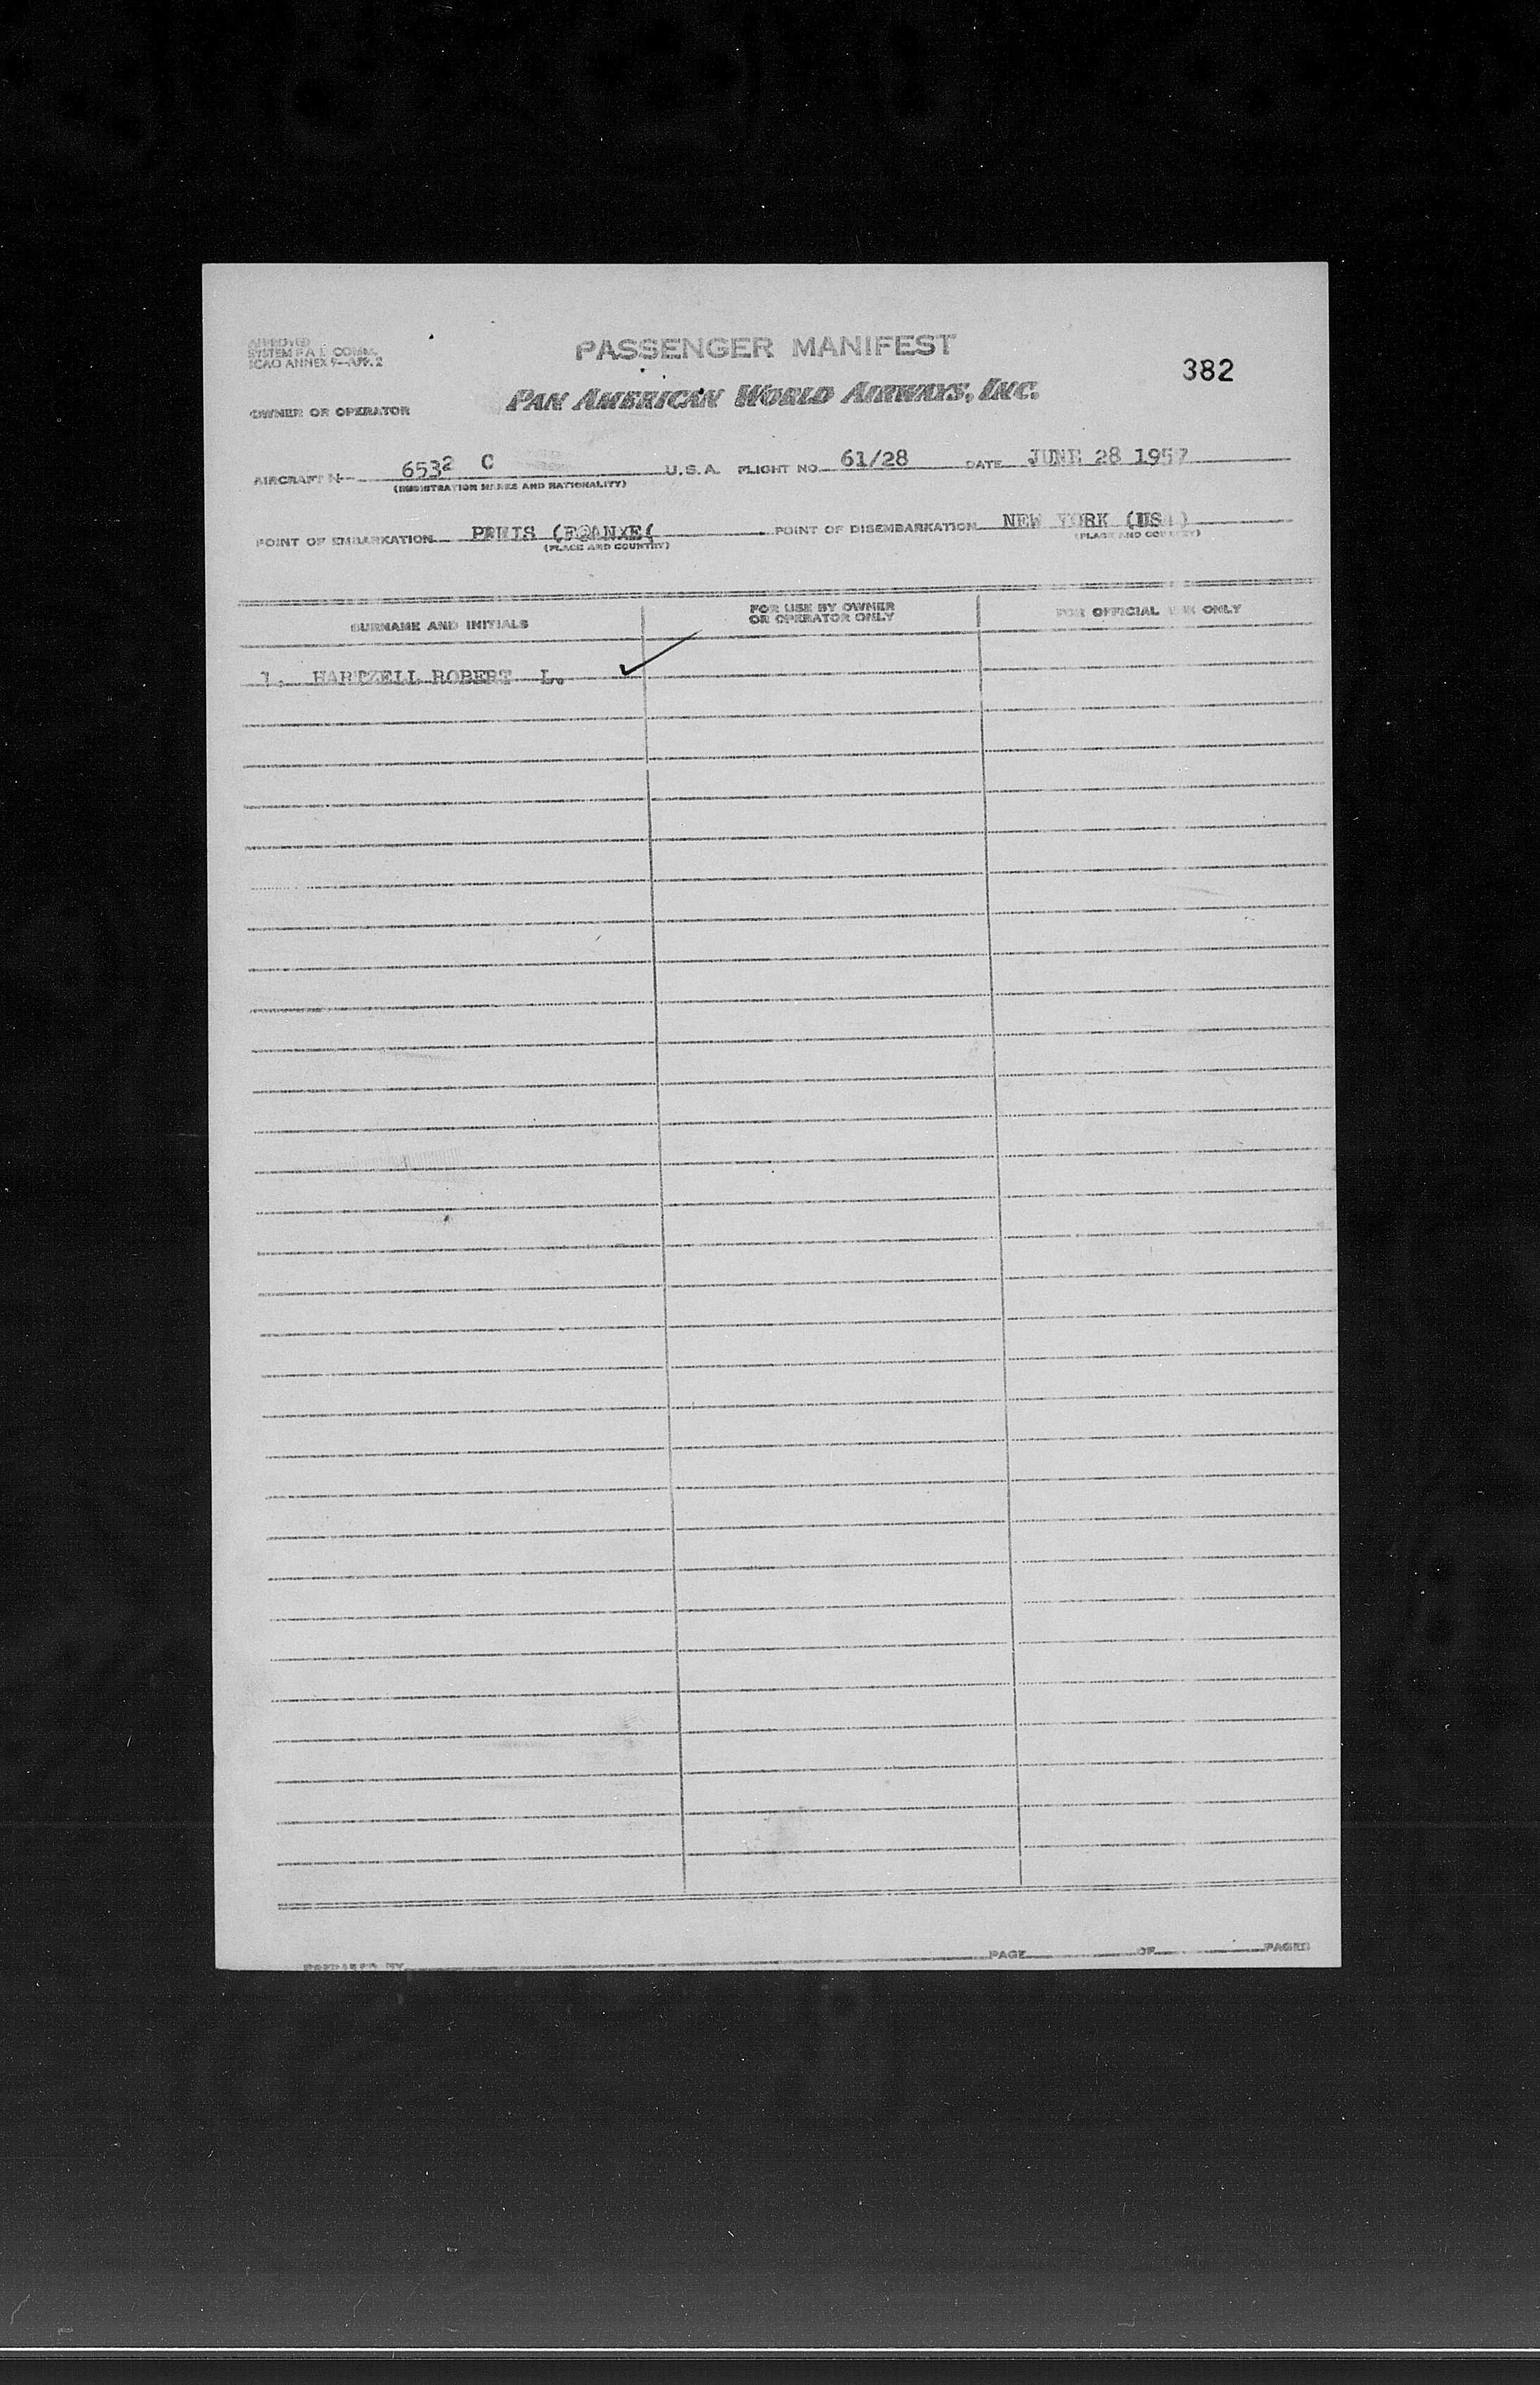 APPROVED
SYSTEM F A L COMM.
ICAO ANNEX 9—APP. 2
PASSENGER MANIFEST
382
OWNER OR OPERATOR
PAN AMERICAN WORLD AIRWAYS, INC.
AIRCRAFT N- 6532 C U.S.A. FLIGHT NO. 61/28 DATE JUNE 28 1957
(REGISTRATION MARKS AND NATIONALITY)
POINT OF EMBARKATION POINT OF DISEMBARKATION NEW YORK (USA)
(PLACE AND COUNTRY) (PLACE AND COUNTRY)
SURNAME AND INITIALS
FOR USE BY OWNER
OR OPERATOR ONLY
FOR OFFICIAL USE ONLY
1. HARTZELL ROBERT L.
PREPARED BY PAGE OF PAGES